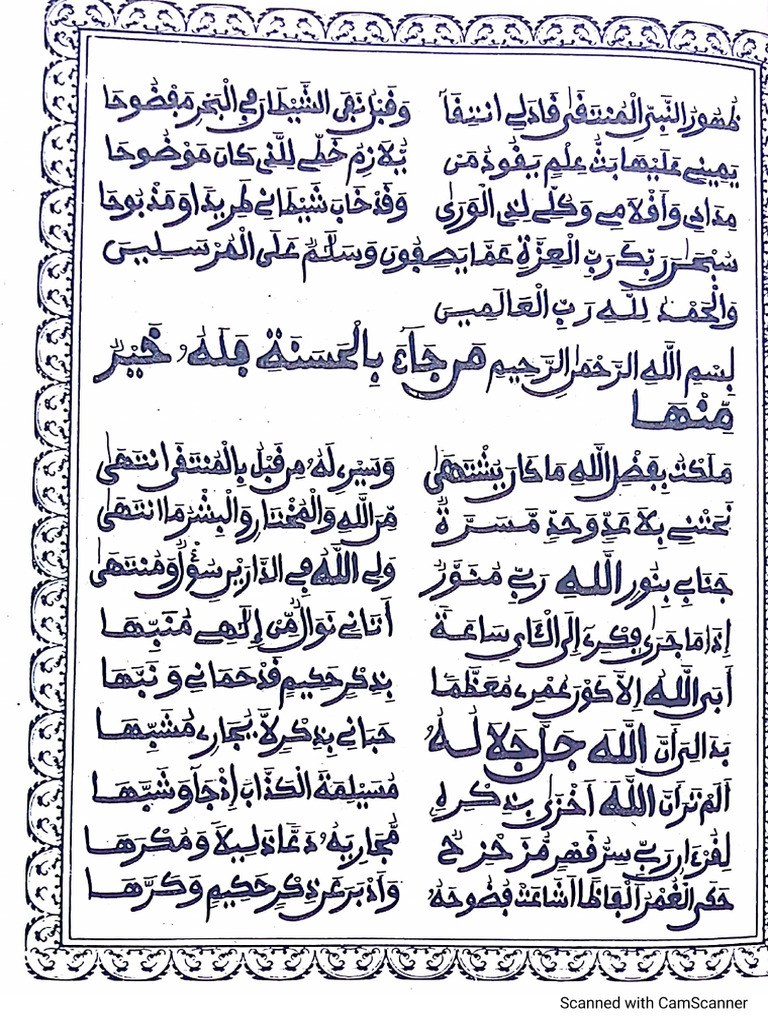 ظُهُورُ النَّبِيِّ الْمُنتَقَى قَادَ لِي انتِقَآ وَقَبْلُ نَفَى الشَّيْطَانَ فِي الْبَحْرِ مَفْضُوحَا
يَمِينِي عَلَيْهَا بَثُّ عِلْمٍ يَقُودُ مَن يُّلَازِمُ خَطِّي لِلَّذِي كَانَ مَوْضُوحَا
مِدَادِي وَأَقْلَامِي وَكُلِّي لِذِي الْوَرَى وَقَدْ خَابَ شَيْطَانِي طَرِيدًا وَمَذْبُوحَا
سُبْحَٰنَ رَبِّكَ رَبِّ الْعِزَّةِ عَمَّا يَصِفُونَ وَسَلَٰمٌ عَلَى الْمُرْسَلِينَ
وَالْحَمْدُ لِلَّهِ رَبِّ الْعَالَمِينَ
بِسْمِ اللَّهِ الرَّحْمَٰنِ الرَّحِيمِ مَن جَآءَ بِالْحَسَنَةِ فَلَهُ خَيْرٌ
مِّنْهَا
مَلَكْتُ بِفَضْلِ اللَّهِ مَا كَانَ يُشْتَهَى وَسَيْرِي لَهُ مِن قَبْلُ بِالْمُنتَقَى انتَهَى
نَحَتْنِي بِلَا عَدٍّ وَحَدٍّ مَسَرَّةٌ مِّنَ اللَّهِ وَالْمُخْتَارِ وَالْبِشْرُ مَا انتَهَى
جَنَابِي بِنُورِ اللَّهِ رَبِّي مُنَوَّرٌ وَلِي اللَّهُ فِي الدَّارَيْنِ سُؤْلٌ وَمُنتَهَى
إِذَا مَا جَرَى فِكْرِي إِلَى الْآيِ سَاعَةً أَتَانِي نَوَالٌ مِّنْ إِلَٰهِي مُنَبِّهَا
أَبَى اللَّهُ إِلَّا كَوْنَ عُمْرِي مُعَظَّمَا بِذِكْرٍ حَكِيمٍ قَدْ حَمَانِي وَنَبَّهَا
بَدَا لِيَ أَنَّ اللَّهَ جَلَّ جَلَالُهُ حَبَانِي بِذِكْرٍ لَا يُجَارِي مُشَبِّهَا
أَلَمْ تَرَ أَنَّ اللَّهَ أَخْزَى بِذِكْرِهِ مُسَيْلِمَةَ الْكَذَّابَ إِذْ جَآ وَشَبَّهَا
لِقُرْءَانِ رَبِّي سِرُّ قَهْرٍ مُزَحْزِحٌ مُّجَارِيَهُ دَعَّا ذَلِيلًا وَمُكْرَهَا
حَكَى الْغُمْرُ أَلْفَاظًا أَشَاعَتْ فُضُوحَهُ وَأَدْبَرَ عَن ذِكْرٍ حَكِيمٍ وَكَرَّهَا
Scanned with CamScanner